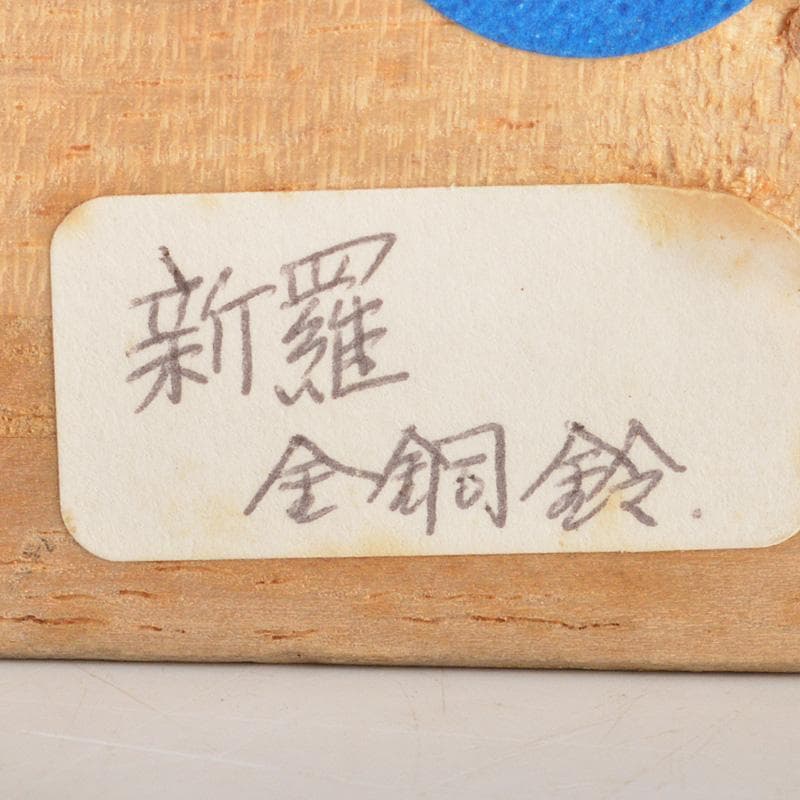 新羅
金銅鈴.